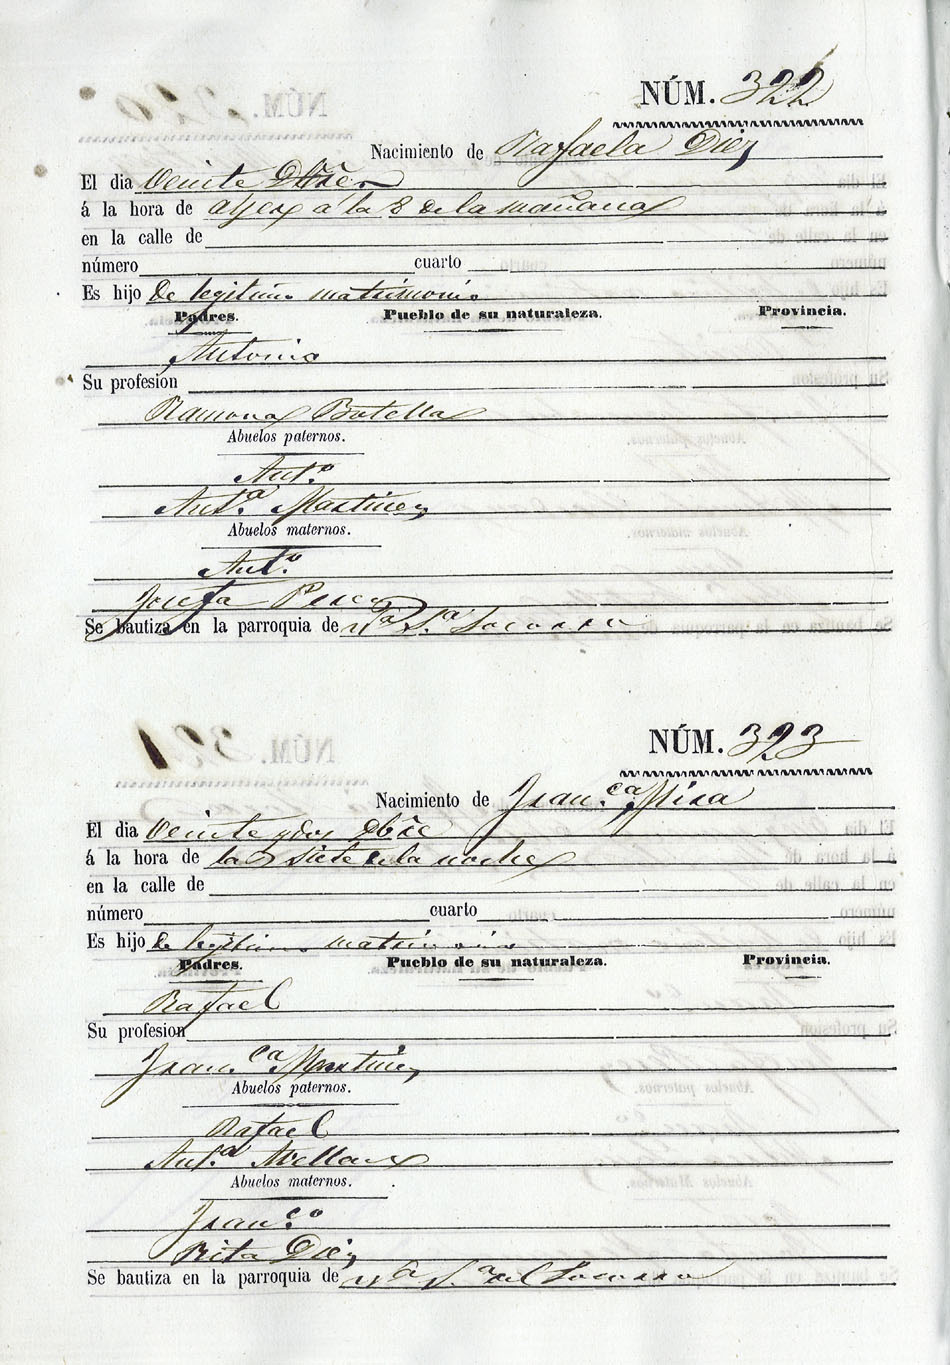 NÚM. 322
Nacimiento de Rafaela Diez
El dia Veinte Dbre
á la hora de ayer a la 8 de la mañana
en la calle de
número cuarto
Es hijo de legitimo matrimonio
Padres. Pueblo de su naturaleza. Provincia.
Antonio
Su profesion
Ramona Botella
Abuelos paternos.
Ant.º
Ant.ª Martinez
Abuelos maternos.
Ant.º
Josefa Perez
Se bautiza en la parroquia de Nª Sª Socorro
NÚM. 323
Nacimiento de Fran.ca Mira
El dia Veinte y dos Dbre
á la hora de las siete de la noche
en la calle de
número cuarto
Es hijo de legitimo matrimonio
Padres. Pueblo de su naturaleza. Provincia.
Rafael
Su profesion
Fran.ca Martinez
Abuelos paternos.
Rafael
Ant.ª Arellano
Abuelos maternos.
Fran.co
Rita Diez
Se bautiza en la parroquia de Nª Sª del Socorro